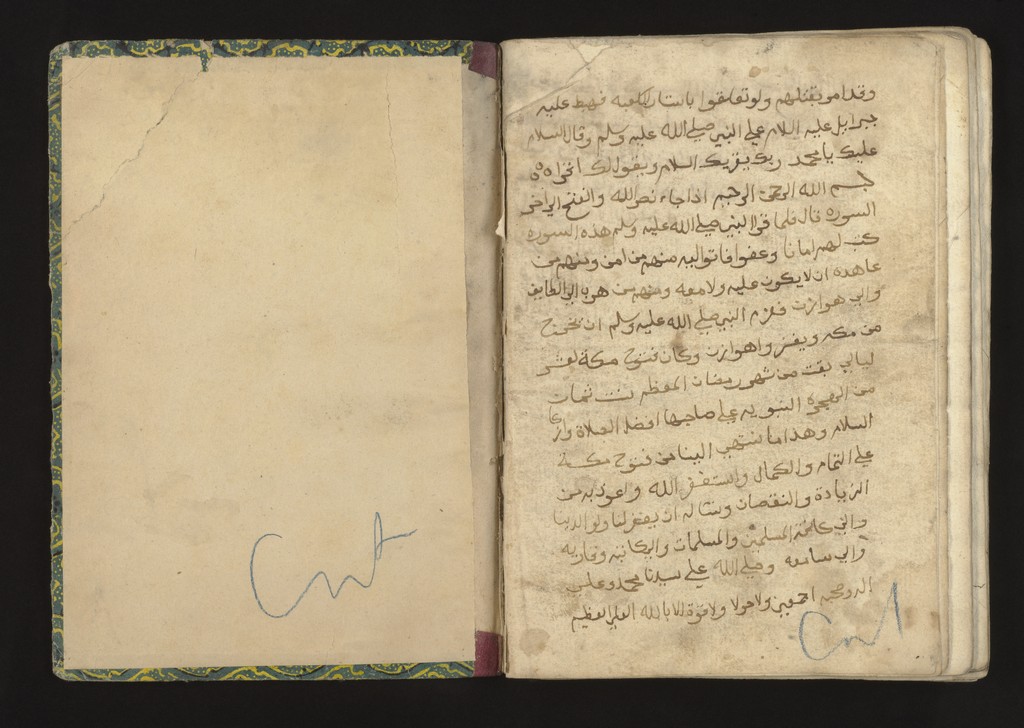 وقد امر بقتلهم ولو تعلقوا باستار الكعبه فهبط عليه
جبرايل عليه السلام على النبي صلى الله عليه وسلم وقال السلام
عليك يا محمد ربك يقريك السلام ويقول لك اقرا
بسم الله الرحمن الرحيم اذا جاء نصر الله والفتح الي اخر
السوره قال فلما قرا النبي صلى الله عليه وسلم هذه السوره
كتب لهم امانا وعفوا فاتوا اليه منهم من امن ومنهم من
عاهده ان لا يكون عليه ولا معه ومنهم من هرب الي الطايف
والي هوازن فلزم النبي صلى الله عليه وسلم ان يخرج
من مكه ويغزوا هوازن وكان فتوح مكة لعشر
ليالي بقت من شهر رمضان المعظم سنت ثمان
من الهجره النبويه على صاحبها افضل الصلاة
السلام وهذا ما انتهي الينا من فتوح مكة
على التمام والكمال واستغفر الله واعوذ به من
الزيادة والنقصان ونساله ان يغفر لنا ولوالدينا
والي كافة المسلمين والمسلمات والي كاتبه وقاريه
والي سامعه وصلى الله على سيدنا محمد وعلي
اله وصحبه اجمعين ولا حول ولا قوة الا بالله العلي العظيم